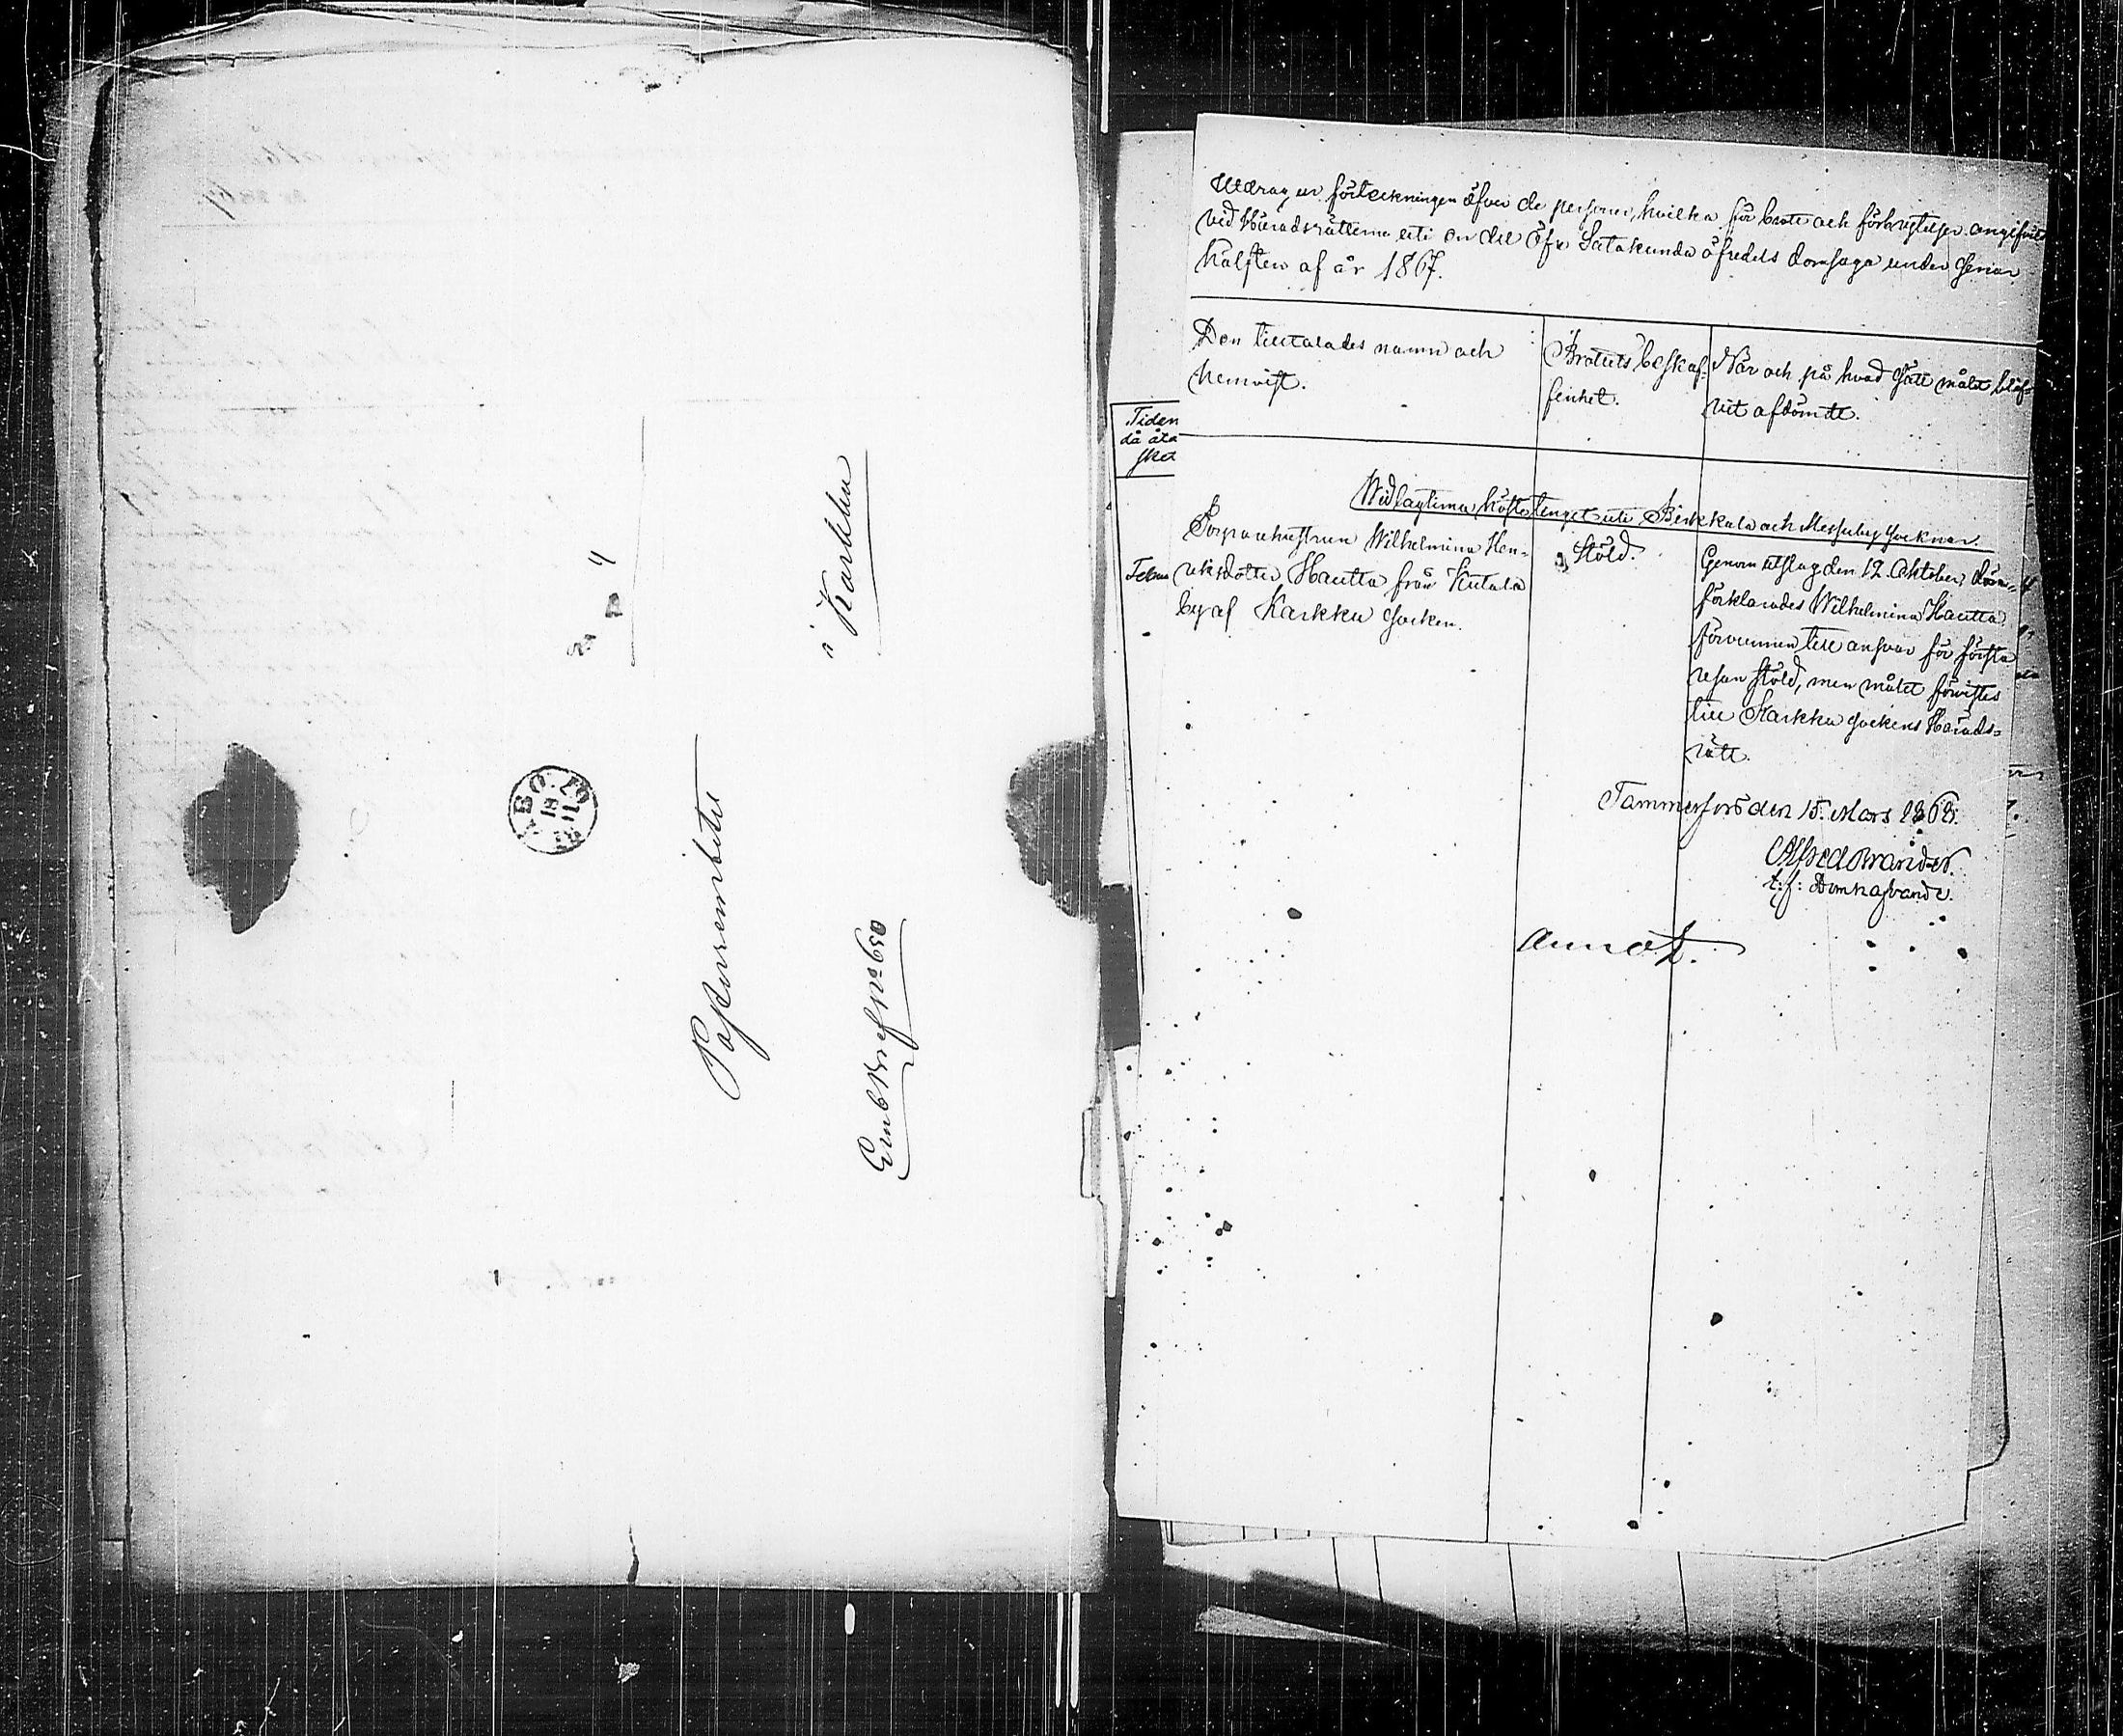 i Karkku
Pastorsembetet
Embbref No 650
ABO
11
Utdrag ur förteckningen öfver de personer, hvilka för brott och förbrytelser angifvits
vid Häradsrätterna uti en del Öfre Satakunda öfredels domsaga under senare
hälften af år 1867.
Den tilltalades namn och
hemvist.
Brottets beskaf-
fenhet.
När och på hvad sätt målet blif-
vit afdömdt.
Tiden
då åta
sked
Vid lagtima hösttinget uti Birkkala och Messuby socknar.
Torparehustrun Wilhelmina Hen-
riksdotter Hautta från Kutala
by af Karkku socken.
Stöld.
Genom utslag den 12. Oktober
förklarades Wilhelmina Hautta
förvunnen till ansvar för första
resan stöld, men målet förvistes
till Karkku sockens Härads-
rätt.
Tammerfors den 15. Mars 1868.
Alfred Brander.
t: f: Domhafvande.
Annot.